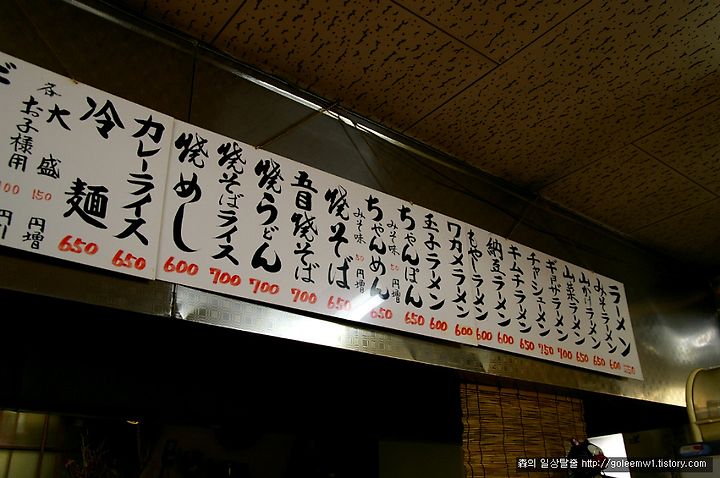 ラーメン
みそラーメン 600
山かけラーメン 650
山菜ラーメン 650
ギョーザラーメン 700
チャーシューメン 750
キムチラーメン 650
納豆ラーメン 600
もやしラーメン 600
ワカメラーメン 600
玉子ラーメン 600
ちゃんぽん 650
みそ味 50円増
ちゃんめん 650
みそ味 50円増
焼そば 650
五目焼そば 700
焼うどん 700
焼そばライス 700
焼めし 600
カレーライス 650
冷麺 650
各大盛 150円増
お子様用 100円引
森의 일상탈출 http://goleemw1.tistory.com